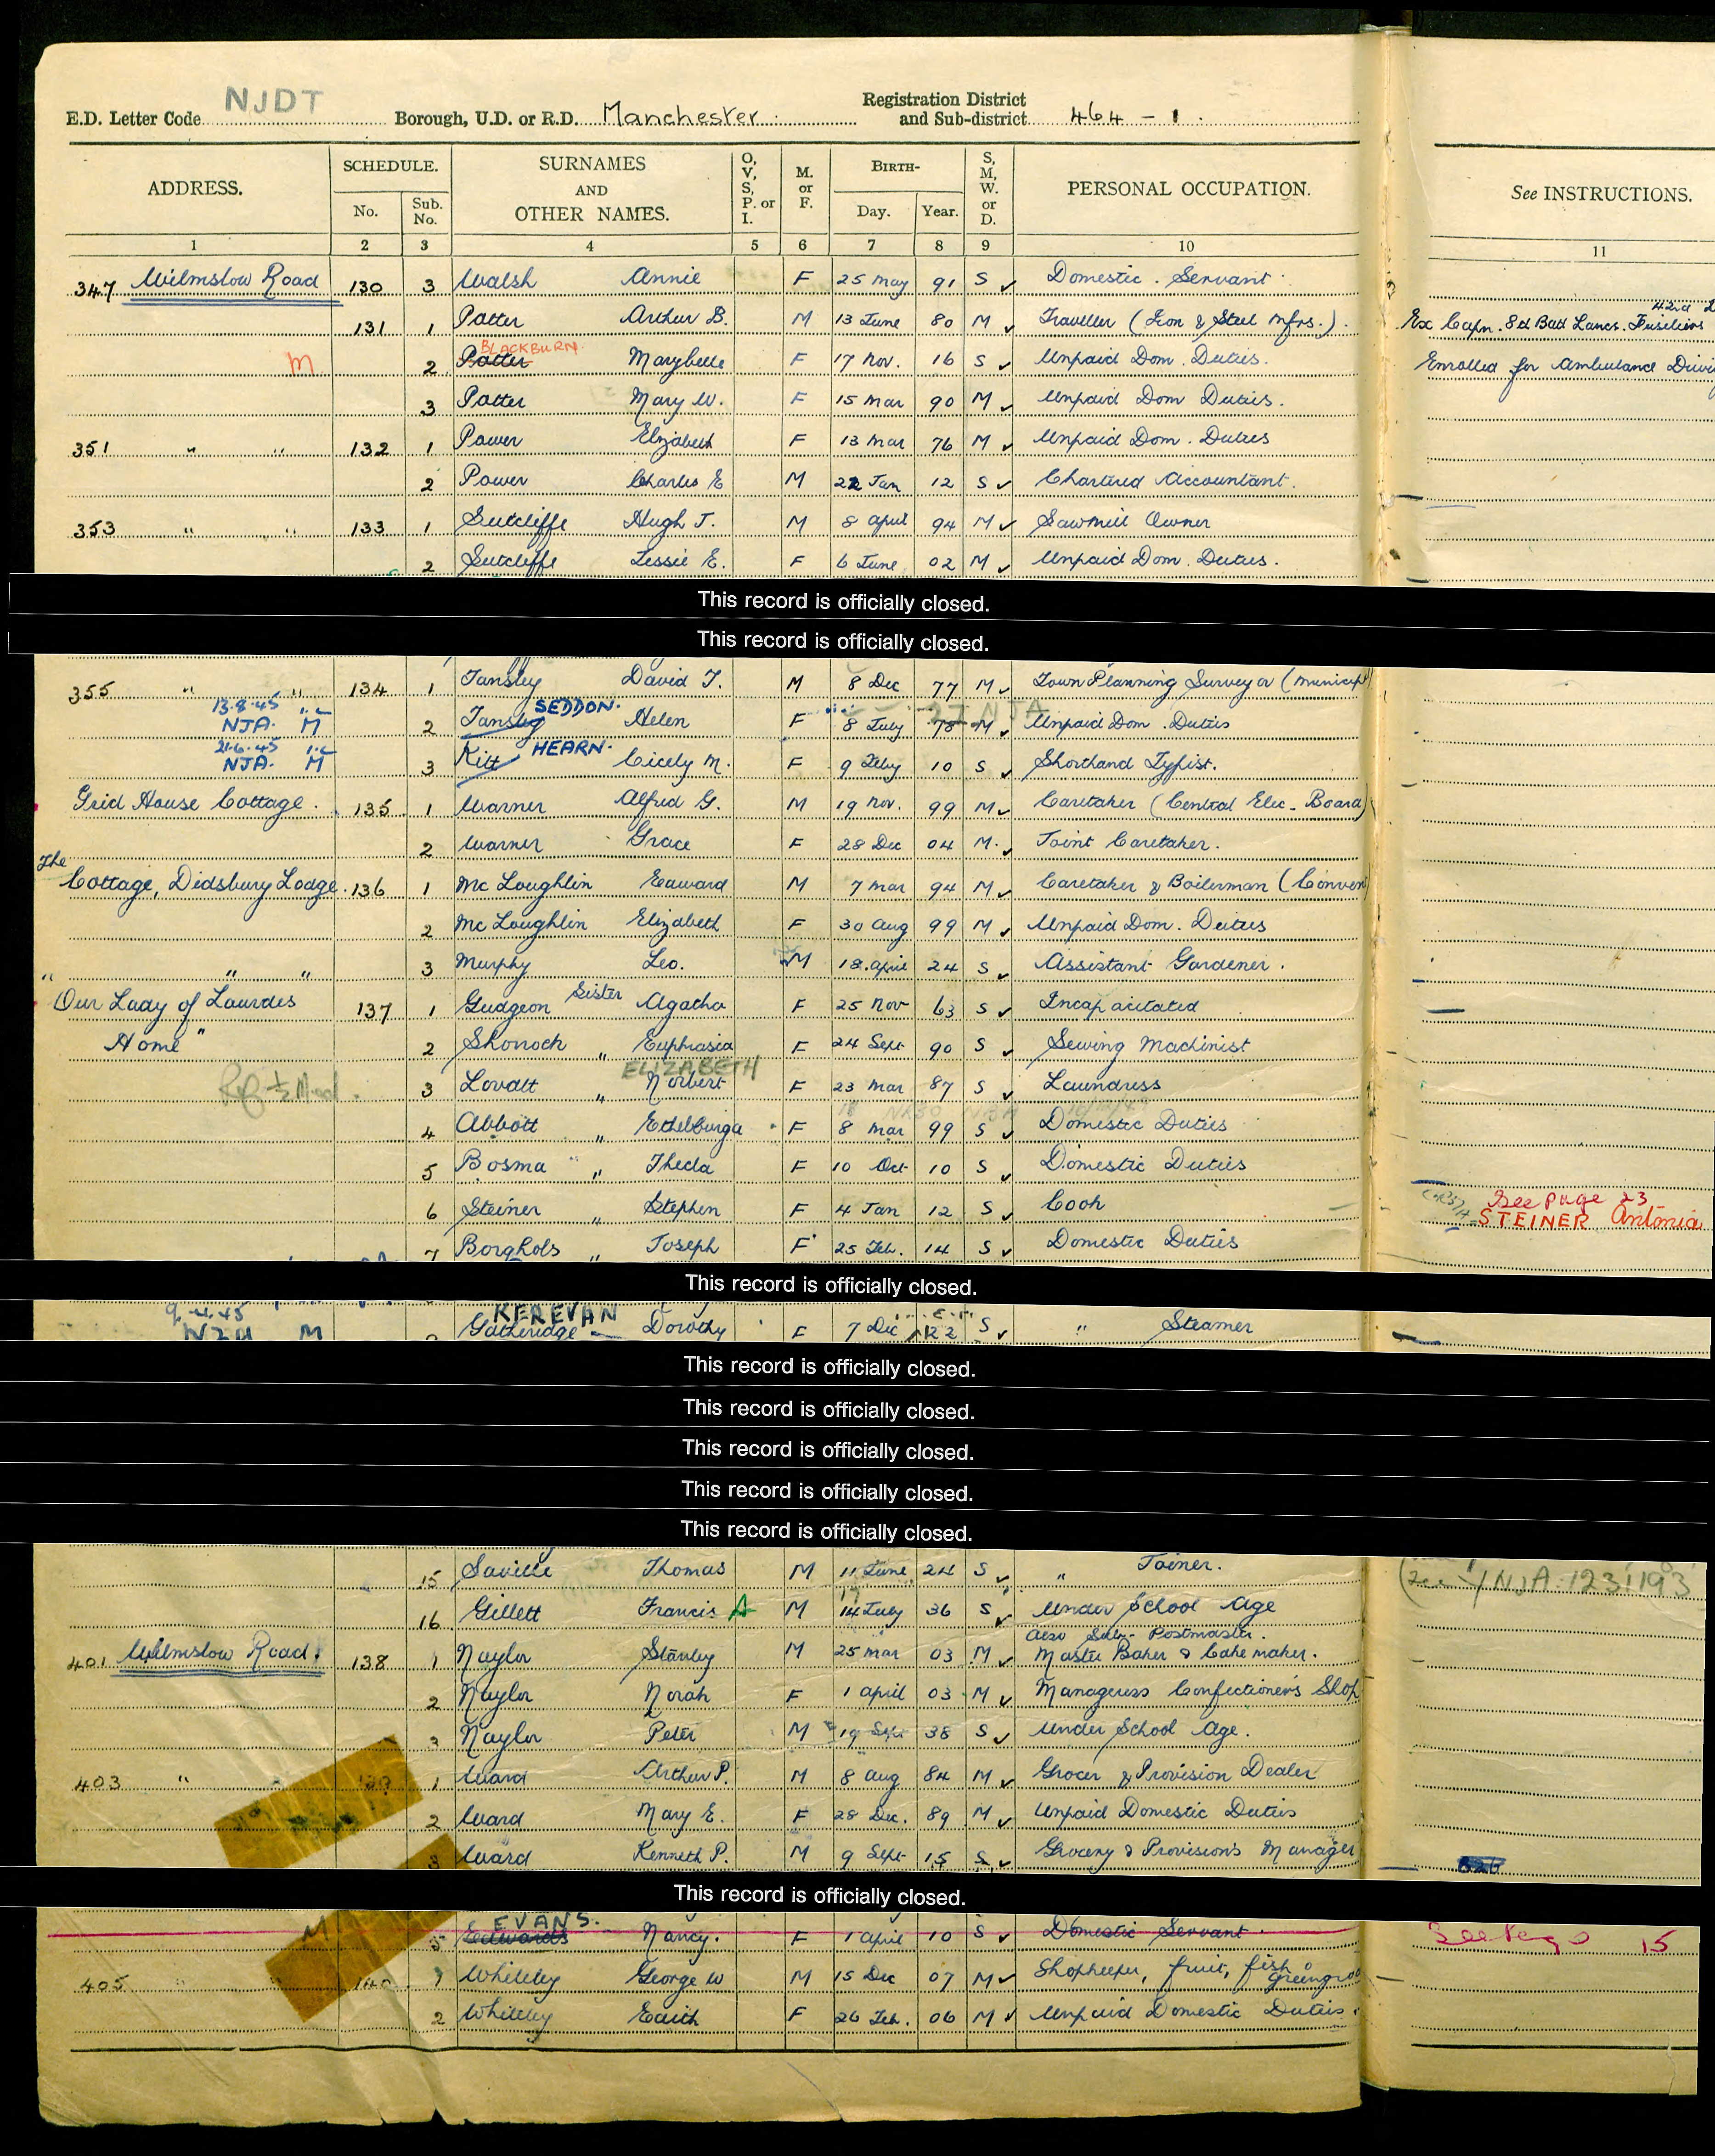 E.D. Letter Code NJDT Borough, U.D. or R.D. Manchester Registration District and Sub-district 464 - 1.
ADDRESS. SCHEDULE. No. Sub. No. SURNAMES AND OTHER NAMES. O, V, S, P. or I. M. or F. BIRTH- Day. Year. S, M, W. or D. PERSONAL OCCUPATION. See INSTRUCTIONS.
1 2 3 4 5 6 7 8 9 10 11
347 Wilmslow Road 130 3 Walsh Annie F 25 May 91 S Domestic. Servant
42nd
131 1 Potter Arthur B. M 13 June 80 M Traveller (Iron & Steel Mfrs.). Ex Capn. 8th Batt Lancs. Fusiliers
BLACKBURN
M 2 Potter Marybelle F 17 Nov. 16 S Unpaid Dom. Duties. Enrolled for Ambulance
3 Potter Mary W. F 15 Mar 90 M Unpaid Dom Duties.
351 " " 132 1 Power Elizabeth F 13 Mar 76 M Unpaid Dom. Duties
2 Power Charles E M 22 Jan 12 S Chartered Accountant.
353 " " 133 1 Sutcliffe Hugh T. M 8 April 94 M Sawmill Owner
2 Sutcliffe Jessie E. F 6 June 02 M Unpaid Dom. Duties.
This record is officially closed.
This record is officially closed.
355 " " 134 1 Tansley David T. M 8 Dec 77 M Town Planning Surveyor (Municipl
13.8.45
SEDDON.
NJA. M 2 Tansley Helen F 8 July 78 M Unpaid Dom. Duties
21.6.45
HEARN.
NJA. M 3 Kitt Cicely M. F 9 Feby 10 S Shorthand Typist.
Grid House Cottage. 135 1 Warner Alfred G. M 19 Nov. 99 M Caretaker (Central Elec. Board)
2 Warner Grace F 28 Dec 04 M. Joint Caretaker.
The
Cottage, Didsbury Lodge. 136 1 Mc Loughlin Edward M 7 Mar 94 M Caretaker & Boilerman (Conven
2 Mc Loughlin Elizabeth F 30 Aug 99 M Unpaid Dom. Duties
" " " 3 Murphy Leo. M 18 April 24 S Assistant Gardener.
Our Lady of Lourdes 137 1 Gudgeon Sister Agatha F 25 Nov 63 S Incapacitated
Home" 2 Shorrock " Euphrasia F 24 Sept 90 S Sewing Machinist
ELIZABETH
3 Lovatt " Norbert F 23 Mar 87 S Laundress
4 Abbott " Ethelburga F 8 Mar 99 S Domestic Duties
5 Bosma " Theda F 10 Oct 10 S Domestic Duties
See page 23
6 Steiner " Stephen F 4 Jan 12 S Cook STEINER Antonia
7 Borghols " Joseph F 25 Feb. 14 S Domestic Duties
This record is officially closed.
KEREVAN
M Gatheridge Dorothy F 7 Dec 22 S " Steamer
This record is officially closed.
This record is officially closed.
This record is officially closed.
This record is officially closed.
This record is officially closed.
15 Saville Thomas M 11 June 24 S " Joiner.
16 Gillett Francis A M 14 July 36 S Under School Age
also Sub- Postmaster.
401 Wilmslow Road. 138 1 Naylor Stanley M 25 Mar 03 M Master Baker & Cake maker.
2 Naylor Norah F 1 April 03 M Manageress Confectioners Shop
3 Naylor Peter M 19 Sept 38 S Under School Age.
403 " 139 1 Ward Arthur P. M 8 Aug 84 M Grocer & Provision Dealer
2 Ward Mary E. F 28 Dec. 89 M Unpaid Domestic Duties
3 Ward Kenneth P. M 9 Sept 15 S Grocery & Provisions Manager
This record is officially closed.
EVANS.
M 5 Edwards Nancy. F 1 April 10 S Domestic Servant. See Page 15
405 " " 140 1 Whiteley George W M 15 Dec 07 M Shopkeeper, fruit, fish & Greengro
2 Whiteley Edith F 26 Feb. 06 M Unpaid Domestic Duties.